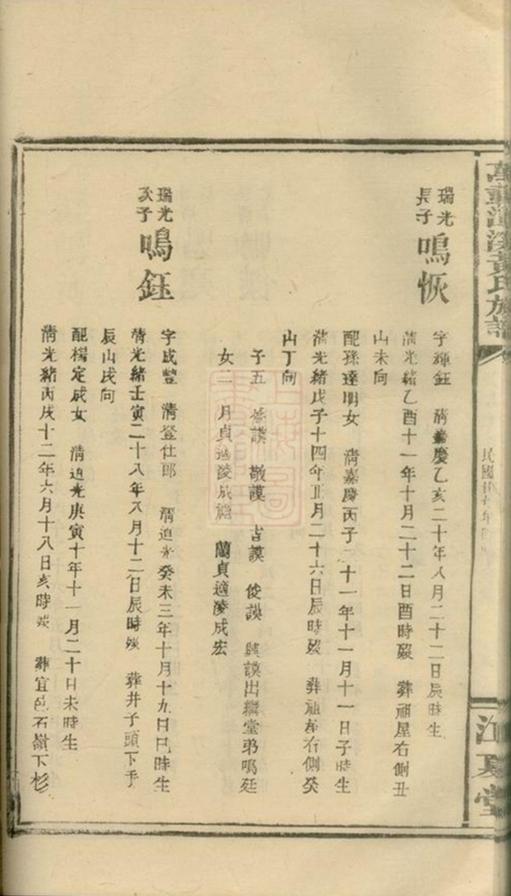 萬載 黃氏族譜
民國
江夏堂
瑞光長子 鳴恢
字輝鈺 清嘉慶乙亥二十年八月二十二日辰時生
清光緒乙酉十一年十月二十二日酉時歿 葬祖屋右側丑
山未向
配孫達明女 清嘉慶丙子二十一年十一月十一日子時生
清光緒戊子十四年正月二十六日辰時歿 葬祖 右側癸
山丁向
子五 謨 敬謨 吉謨 俊謨 謨出繼堂弟鳴廷
女二 月貞適凌成 蘭貞適凌成宏
瑞光次子 鳴鈺
字成豐 清登仕郎 清道光癸未三年十月十九日巳時生
清光緒壬寅二十八年八月十二日辰時歿 葬井子頭下手
辰山戌向
配楊定成女 清道光庚寅十年十一月二十日未時生
清光緒丙戌十二年六月十八日亥時歿 葬宜邑石嶺下杉